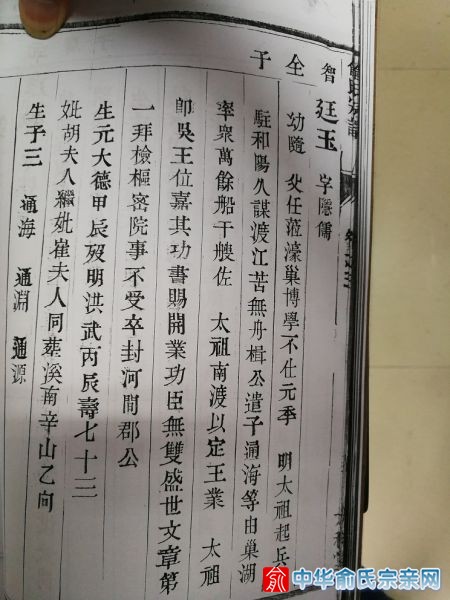 俞氏宗譜
智全子
廷玉 字隱儒
幼隨 父任蒞濠巢博學不仕元季 明太祖起兵
駐和陽久謀渡江苦無舟楫公遣子通海等由巢湖
率衆萬餘船千艘佐 太祖南渡以定王業 太祖
卽吳王位嘉其功書賜開業功臣無雙盛世文章第
一拜檢樞密院事不受卒封河間郡公
生元大德甲辰歿明洪武丙辰壽七十三
妣胡夫人繼妣崔夫人同葬溪南辛山乙向
生子三 通海 通淵 通源
俞 中华俞氏宗亲网